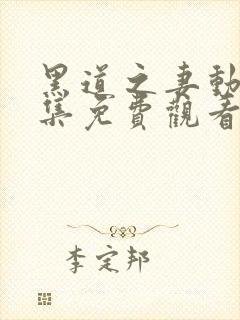 黑道之妻動
集免費觀看
李定邦